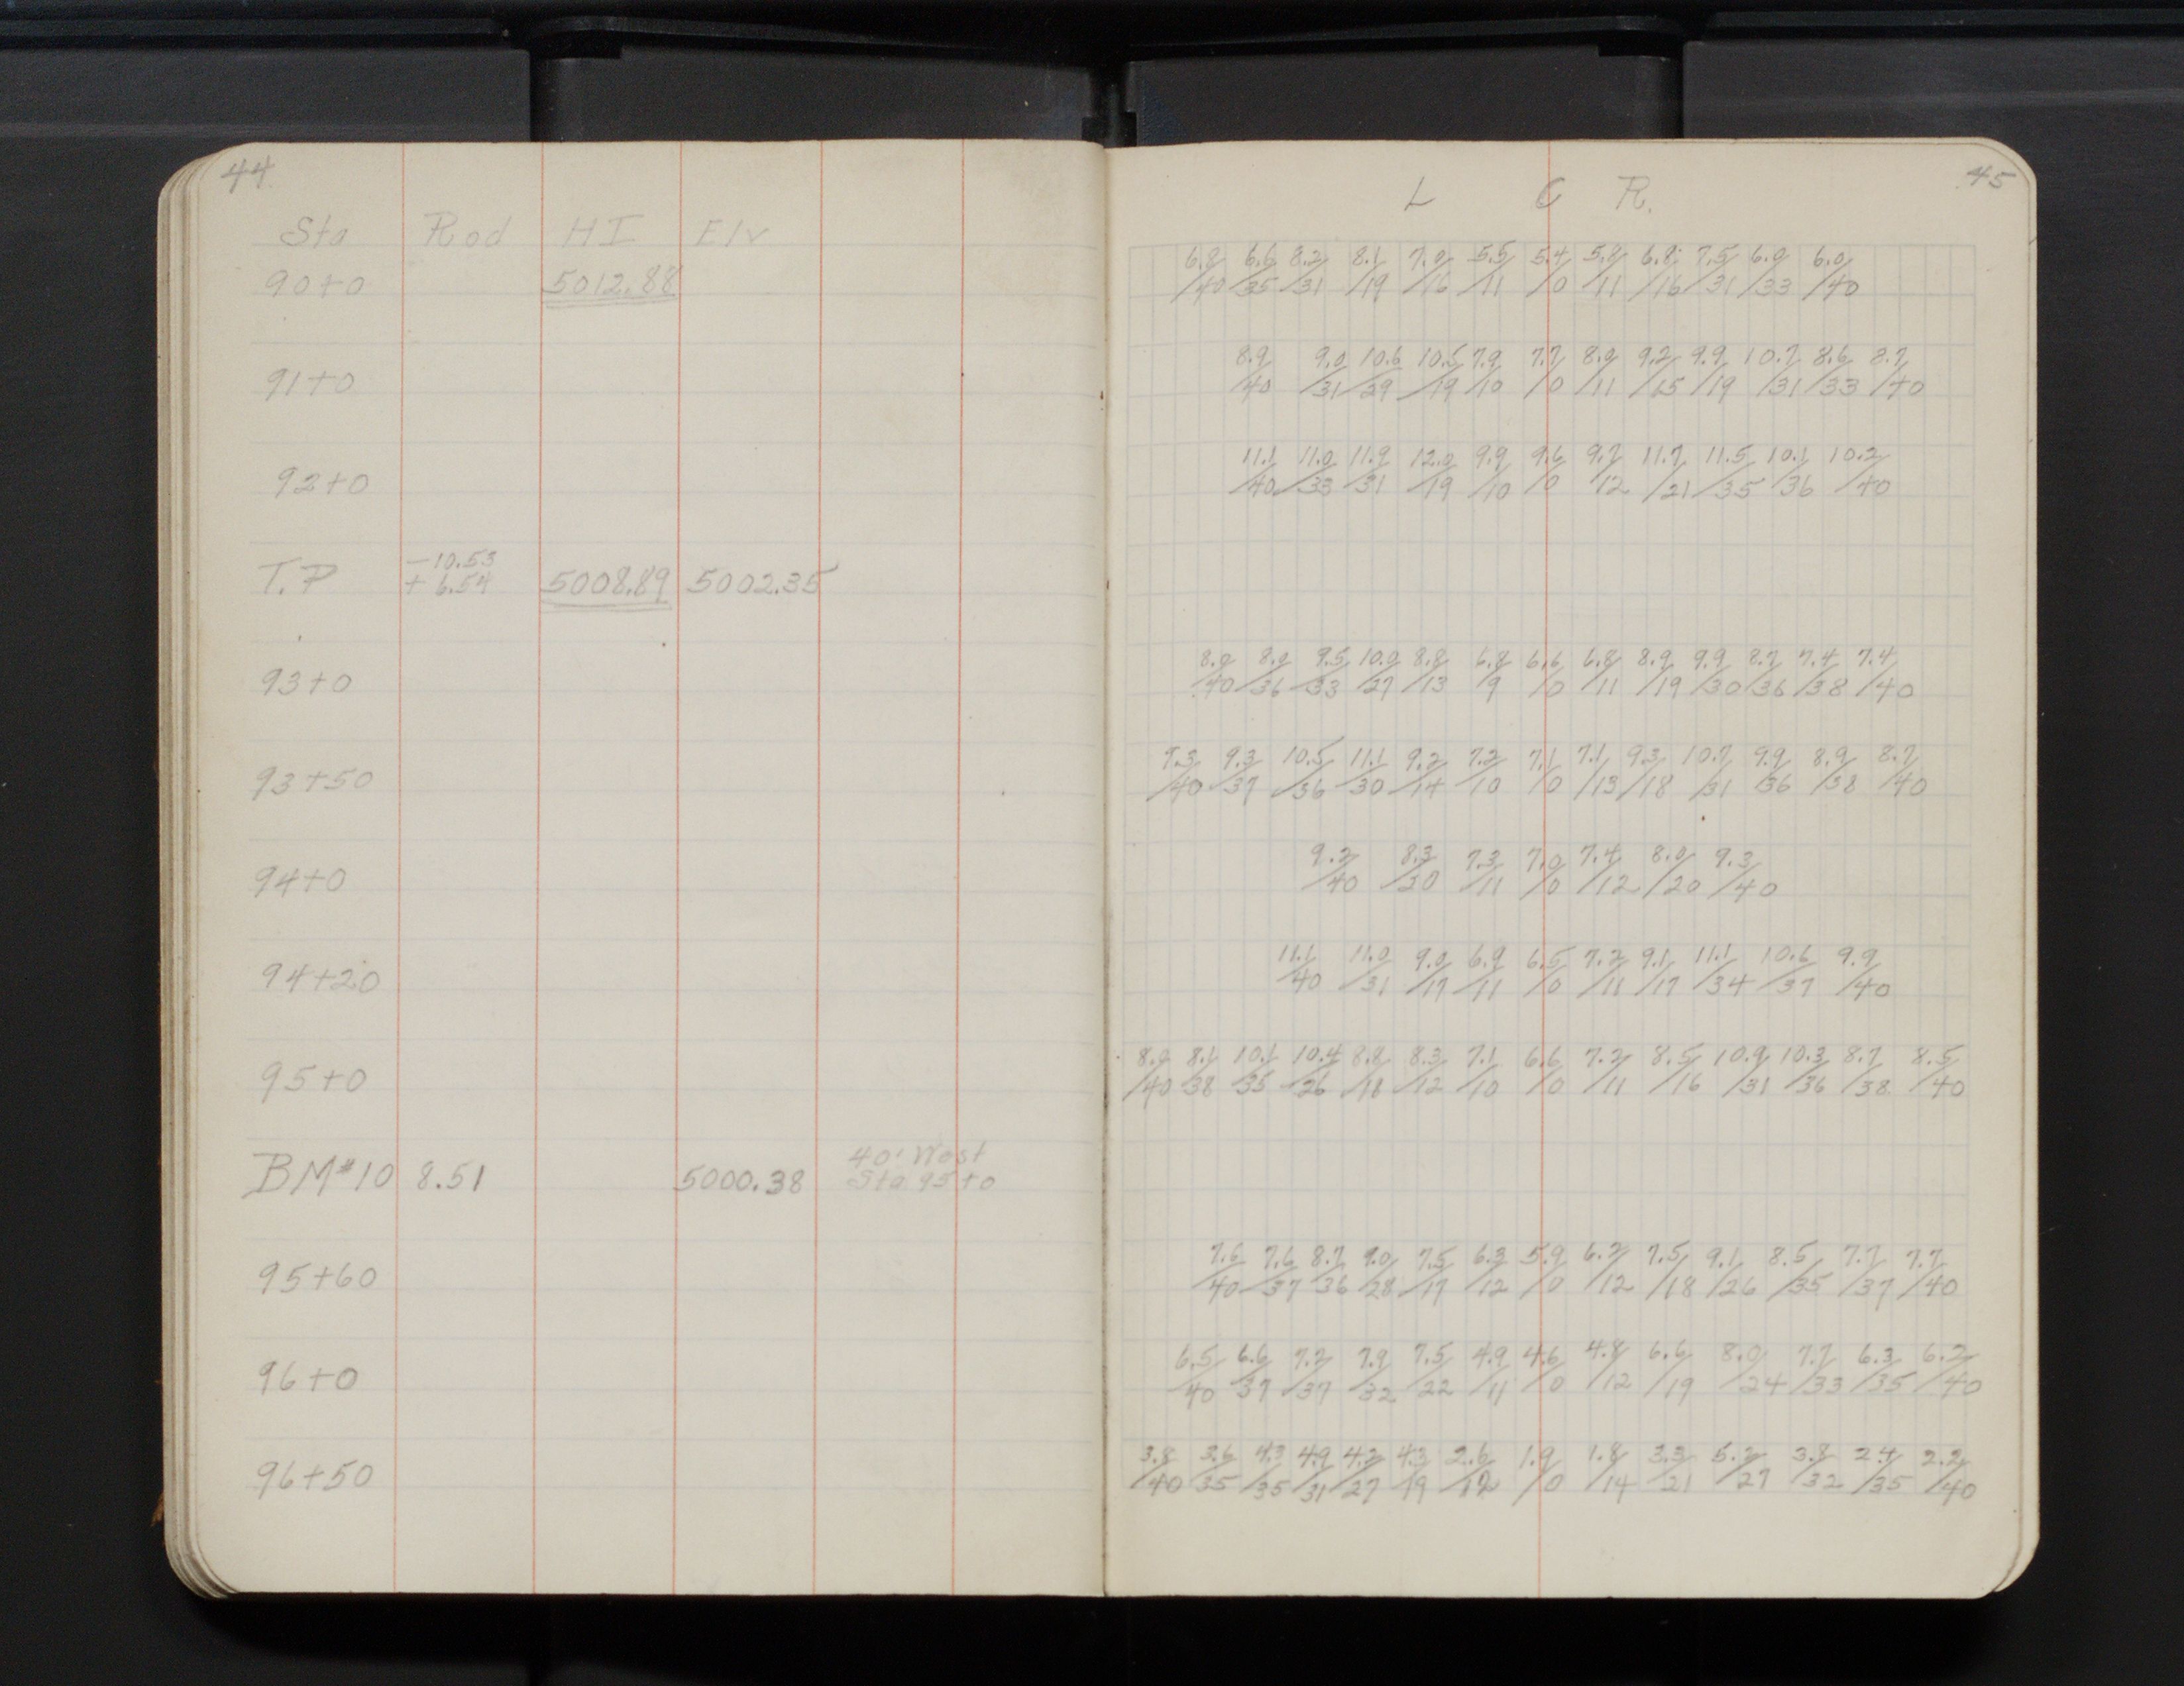 44
Sta Rod HI Elv
90+0 5012.88
91+0
92+0
T.P -10.53 +6.54 5008.89 5002.35
93+0
93+50
94+0
94+20
95+0
BM#10 8.51 5000.38 40' West Sta 95+0
95+60
96+0
96+50
45
L C R.
6.8/40 6.6/35 8.2/31 8.1/19 7.0/16 5.5/11 5.4/0 5.8/11 6.8/16 7.5/31 6.0/33 6.0/40
8.9/40 9.0/31 10.6/29 10.5/19 7.9/10 7.7/0 8.0/11 9.2/15 9.9/19 10.7/31 8.6/33 8.7/40
11.1/40 11.0/33 11.9/31 12.0/19 9.9/10 9.6/0 9.7/12 11.7/21 11.5/35 10.1/36 10.2/40
8.0/40 8.0/36 9.5/33 10.0/27 8.8/13 6.8/9 6.6/0 6.8/11 8.9/19 9.9/30 8.7/36 7.4/38 7.4/40
9.3/40 9.3/37 10.5/36 11.1/30 9.2/14 7.2/10 7.1/0 7.1/13 9.3/18 10.7/31 9.9/36 8.9/38 8.7/40
9.2/40 8.3/30 7.3/11 7.0/0 7.4/12 8.0/20 9.3/40
11.1/40 11.0/31 9.0/17 6.9/11 6.5/0 7.2/11 9.1/17 11.1/34 10.6/37 9.9/40
8.0/40 8.1/38 10.1/35 10.4/26 8.8/18 8.3/12 7.1/10 6.6/0 7.2/11 8.5/16 10.9/31 10.3/36 8.7/38 8.5/40
7.6/40 7.6/37 8.7/36 9.0/28 7.5/17 6.3/12 5.9/0 6.2/12 7.5/18 9.1/26 8.5/35 7.7/37 7.7/40
6.5/40 6.6/37 7.7/37 7.9/32 7.5/22 4.9/11 4.6/0 4.8/12 6.6/19 8.0/24 7.7/33 6.3/35 6.2/40
3.8/40 3.6/35 4.3/35 4.9/31 4.2/27 4.3/19 2.6/12 1.9/0 1.8/14 3.3/21 5.2/27 3.8/32 2.4/35 2.2/40